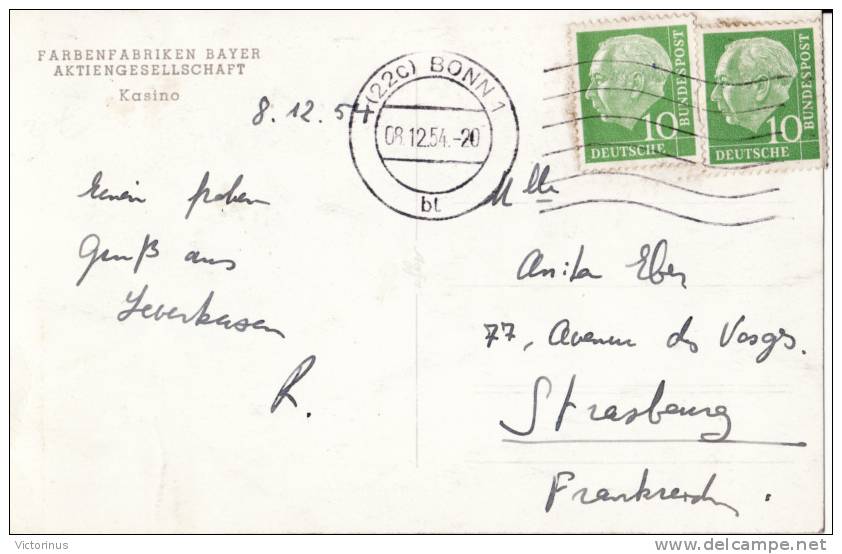 FARBENFABRIKEN BAYER
AKTIENGESELLSCHAFT
Kasino
8.12.54
(22c) BONN 1
08.12.54.-20
bt
10
DEUTSCHE
BUNDESPOST
10
DEUTSCHE
BUNDESPOST
Einen frohen
Gruß aus
Leverkusen
R.
Mlle
Anita Eber
77, Avenue des Vosges.
Strasbourg
Frankreich.
Victorinus
delcampe.net